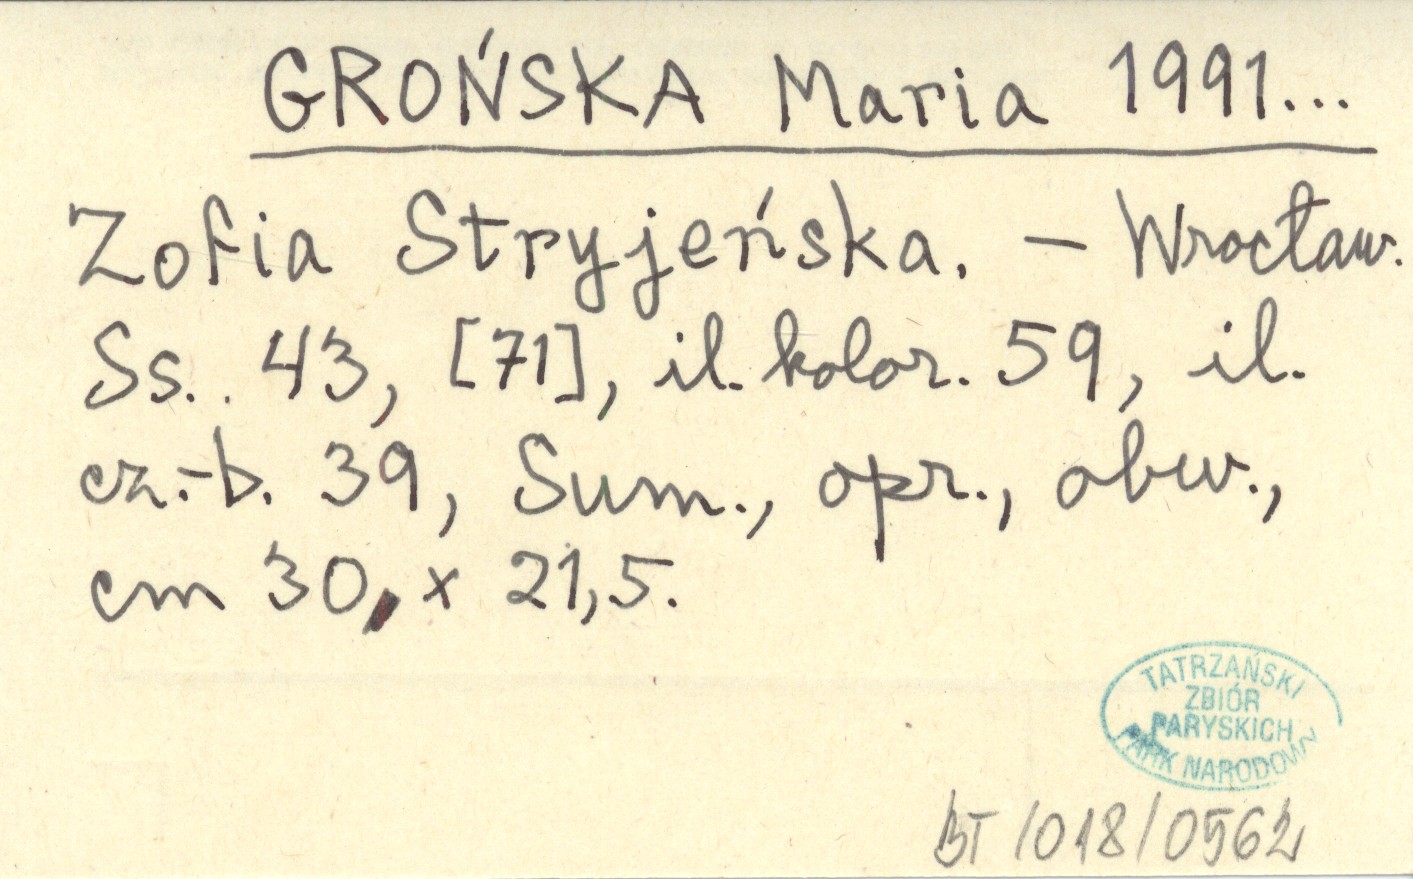 GROŃSKA Maria 1991...
Zofia Stryjeńska. – Wrocław.
Ss. 43, [71], il. kolor. 59, il.
cz.-b. 39, Sum., opr., obw.,
cm 30, x 21,5.
TATRZAŃSKI
ZBIÓR
PARYSKICH
PARK NARODOWY
BT/018/0562